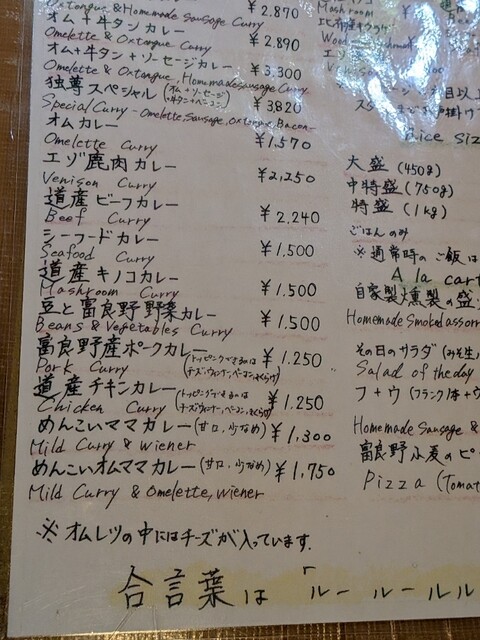 Oxtongue & Homemade Sausage Curry ¥2.870
オム+牛タン カレー
Omelette & Oxtongue Curry ¥2.890
オム+牛タン+ソーセージカレー
Omelette & Oxtongue, Homemade Sausage Curry ¥3,300
独尊スペシャル(オム+ソーセージ+牛タン+ベーコン)
Special Curry - Omelette, Sausage, Oxtongue, Bacon- ¥3,820
オムカレー
Omelette Curry ¥1,570
エゾ鹿肉カレー
Venison Curry ¥2,250
道産 ビーフカレー
Beef Curry ¥2.240
シーフードカレー
Seafood Curry ¥1,500
道産 キノコカレー
Mashroom Curry ¥1.500
豆と富良野野菜カレー
Beans & Vegetables Curry ¥1.500
富良野産ポークカレー
Pork Curry ¥1.250
道産 チキンカレー
Chicken Curry ¥1.250
めんこいママカレー(甘口、少なめ) ¥1,300
Mild Curry & wiener
めんこいオムママカレー(甘口、少なめ) ¥1,750
Mild Curry & Omelette, wiener
※オムレツの中にはチーズが入っています.
合言葉は「ルー ルールル
Mashroom
Rice Siz
大盛(450g)
中特盛(750g)
特盛(1kg)
ごはんのみ
※通常時のご飯は
A la cart
自家製燻製の盛
Homemade Smoked assor
その日のサラダ(みそ生
Salad of the day
フ+ウ(フランク1本+ウ
Homemade Sausage &
富良野小麦のピ
Pizza (Tomat